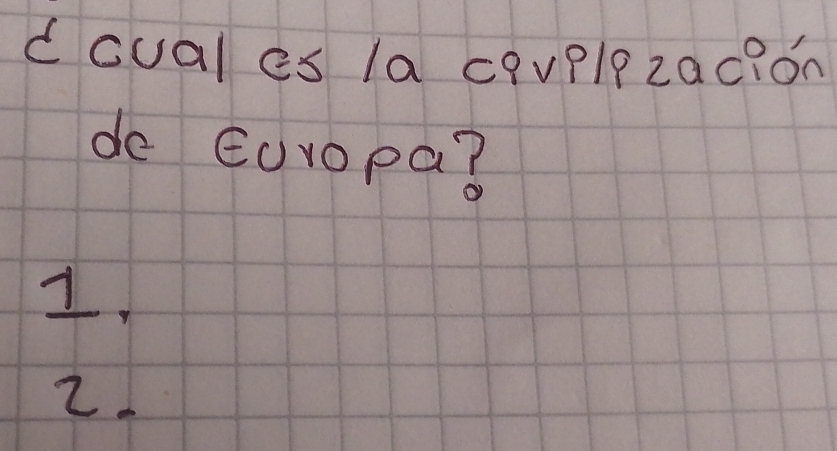 ¿cual es la civilización
de Europa?
1.
2.